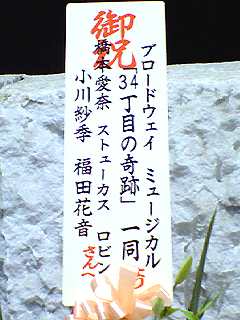 御祝
ブロードウェイ ミュージカル
「34丁目の奇跡」 一同
橋本愛奈 ストューカス ロビン
小川紗季 福田花音
さんへ